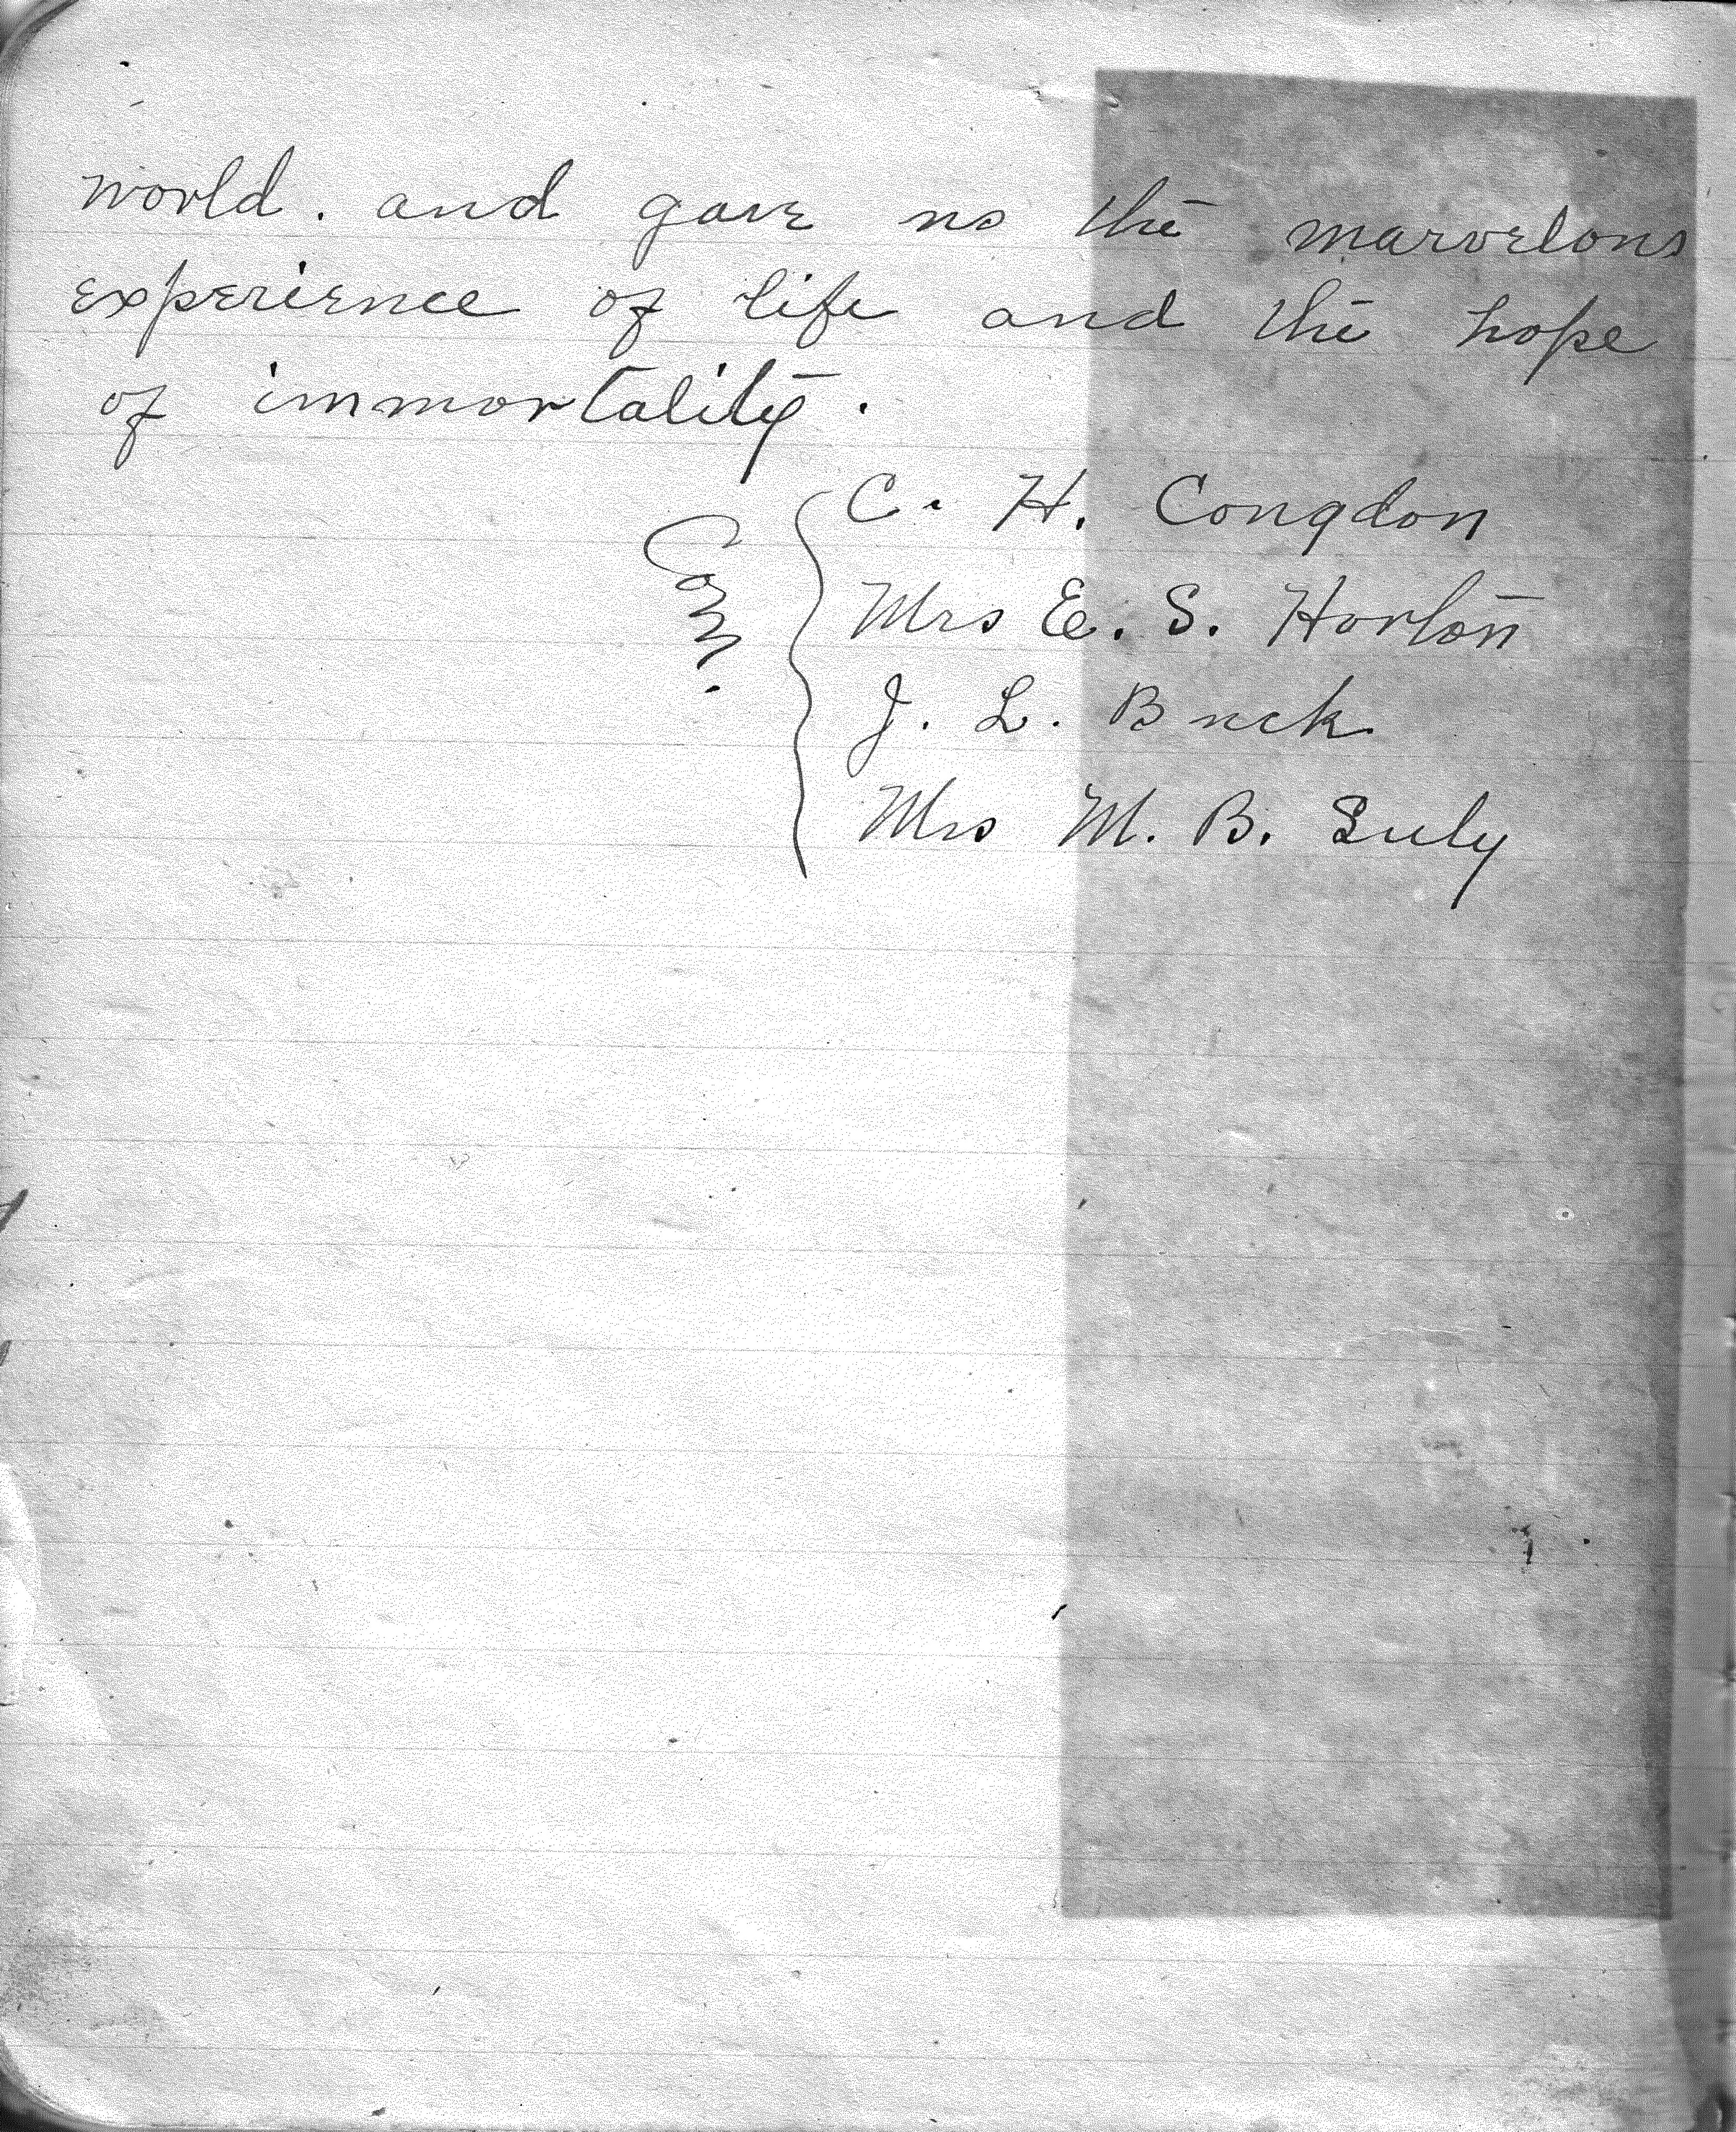 world. and gave us the marvelous
experience of life and the hope
of immortality.
Com. C. H. Congdon
Mrs E. S. Horton
J. L. Buck
Mrs M. B. Suly